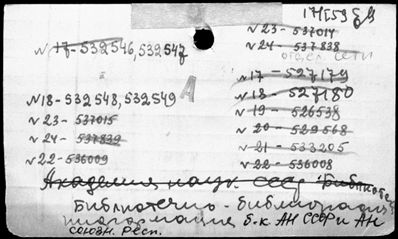 17/I 59
N 17-532546, 532547
N18-532548, 532549
N 23- 537015
N 24- 537839
N22-536009
N 23- 537014
N 24- 537838
отдел. сети
N 17 - 527179
N 18 - 527180
N 19 - 526538
N 20 - 529568
N 21 - 533205
N 22 - 536008
Академия наук СССР Библиоте
Библиотечно-библиографич
информация б-к АН СССР и АН
союзн. Респ.